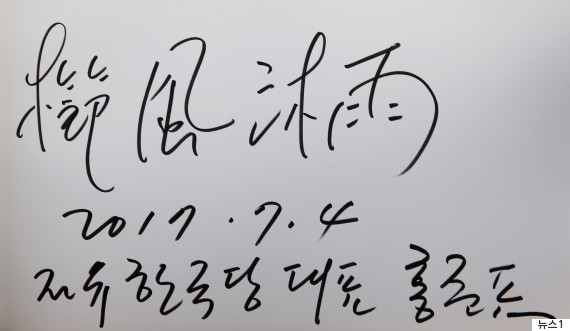 櫛風沐雨
2017.7.4
자유한국당 대표 홍준표
뉴스1